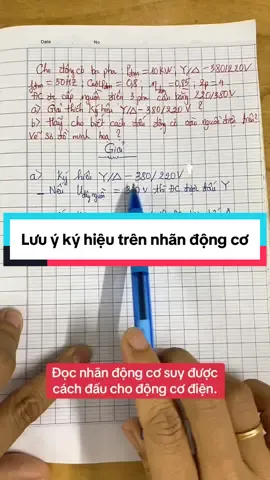 Date No
Cho động cơ ba pha Pđm = 10KW; Y/Δ - 380/220V
fđm = 50HZ; Cosφđm = 0,8; ηđm = 0,85; 2p = 4
ĐC được cấp nguồn điện 3 pha cân bằng 220/380V
a) Giải thích ký hiệu Y/Δ - 380/220V?
b) Hãy cho biết cách đấu động cơ vào nguồn điện trên?
Vẽ sơ đồ minh họa?
Giải
a) Ký hiệu Y/Δ - 380/220V
- Nếu Udây nguồn = 380V thì ĐC được đấu Y
Lưu ý ký hiệu trên nhãn động cơ
Đọc nhãn động cơ suy được
cách đấu cho động cơ điện.